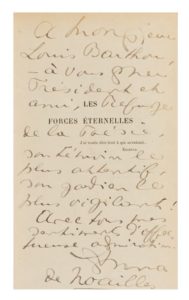 A Monsieur
Louis Barthou,
– à vous cher
Président et
ami, LES
FORCES ÉTERNELLES
de la Poésie,
J'ai voulu être tout à qui m'entend.
son témoin le
plus attentif,
son gardien le
plus vigilant !
Avec tous mes
sentiments d'affec-
tueuse admiration.
Anna
de Noailles